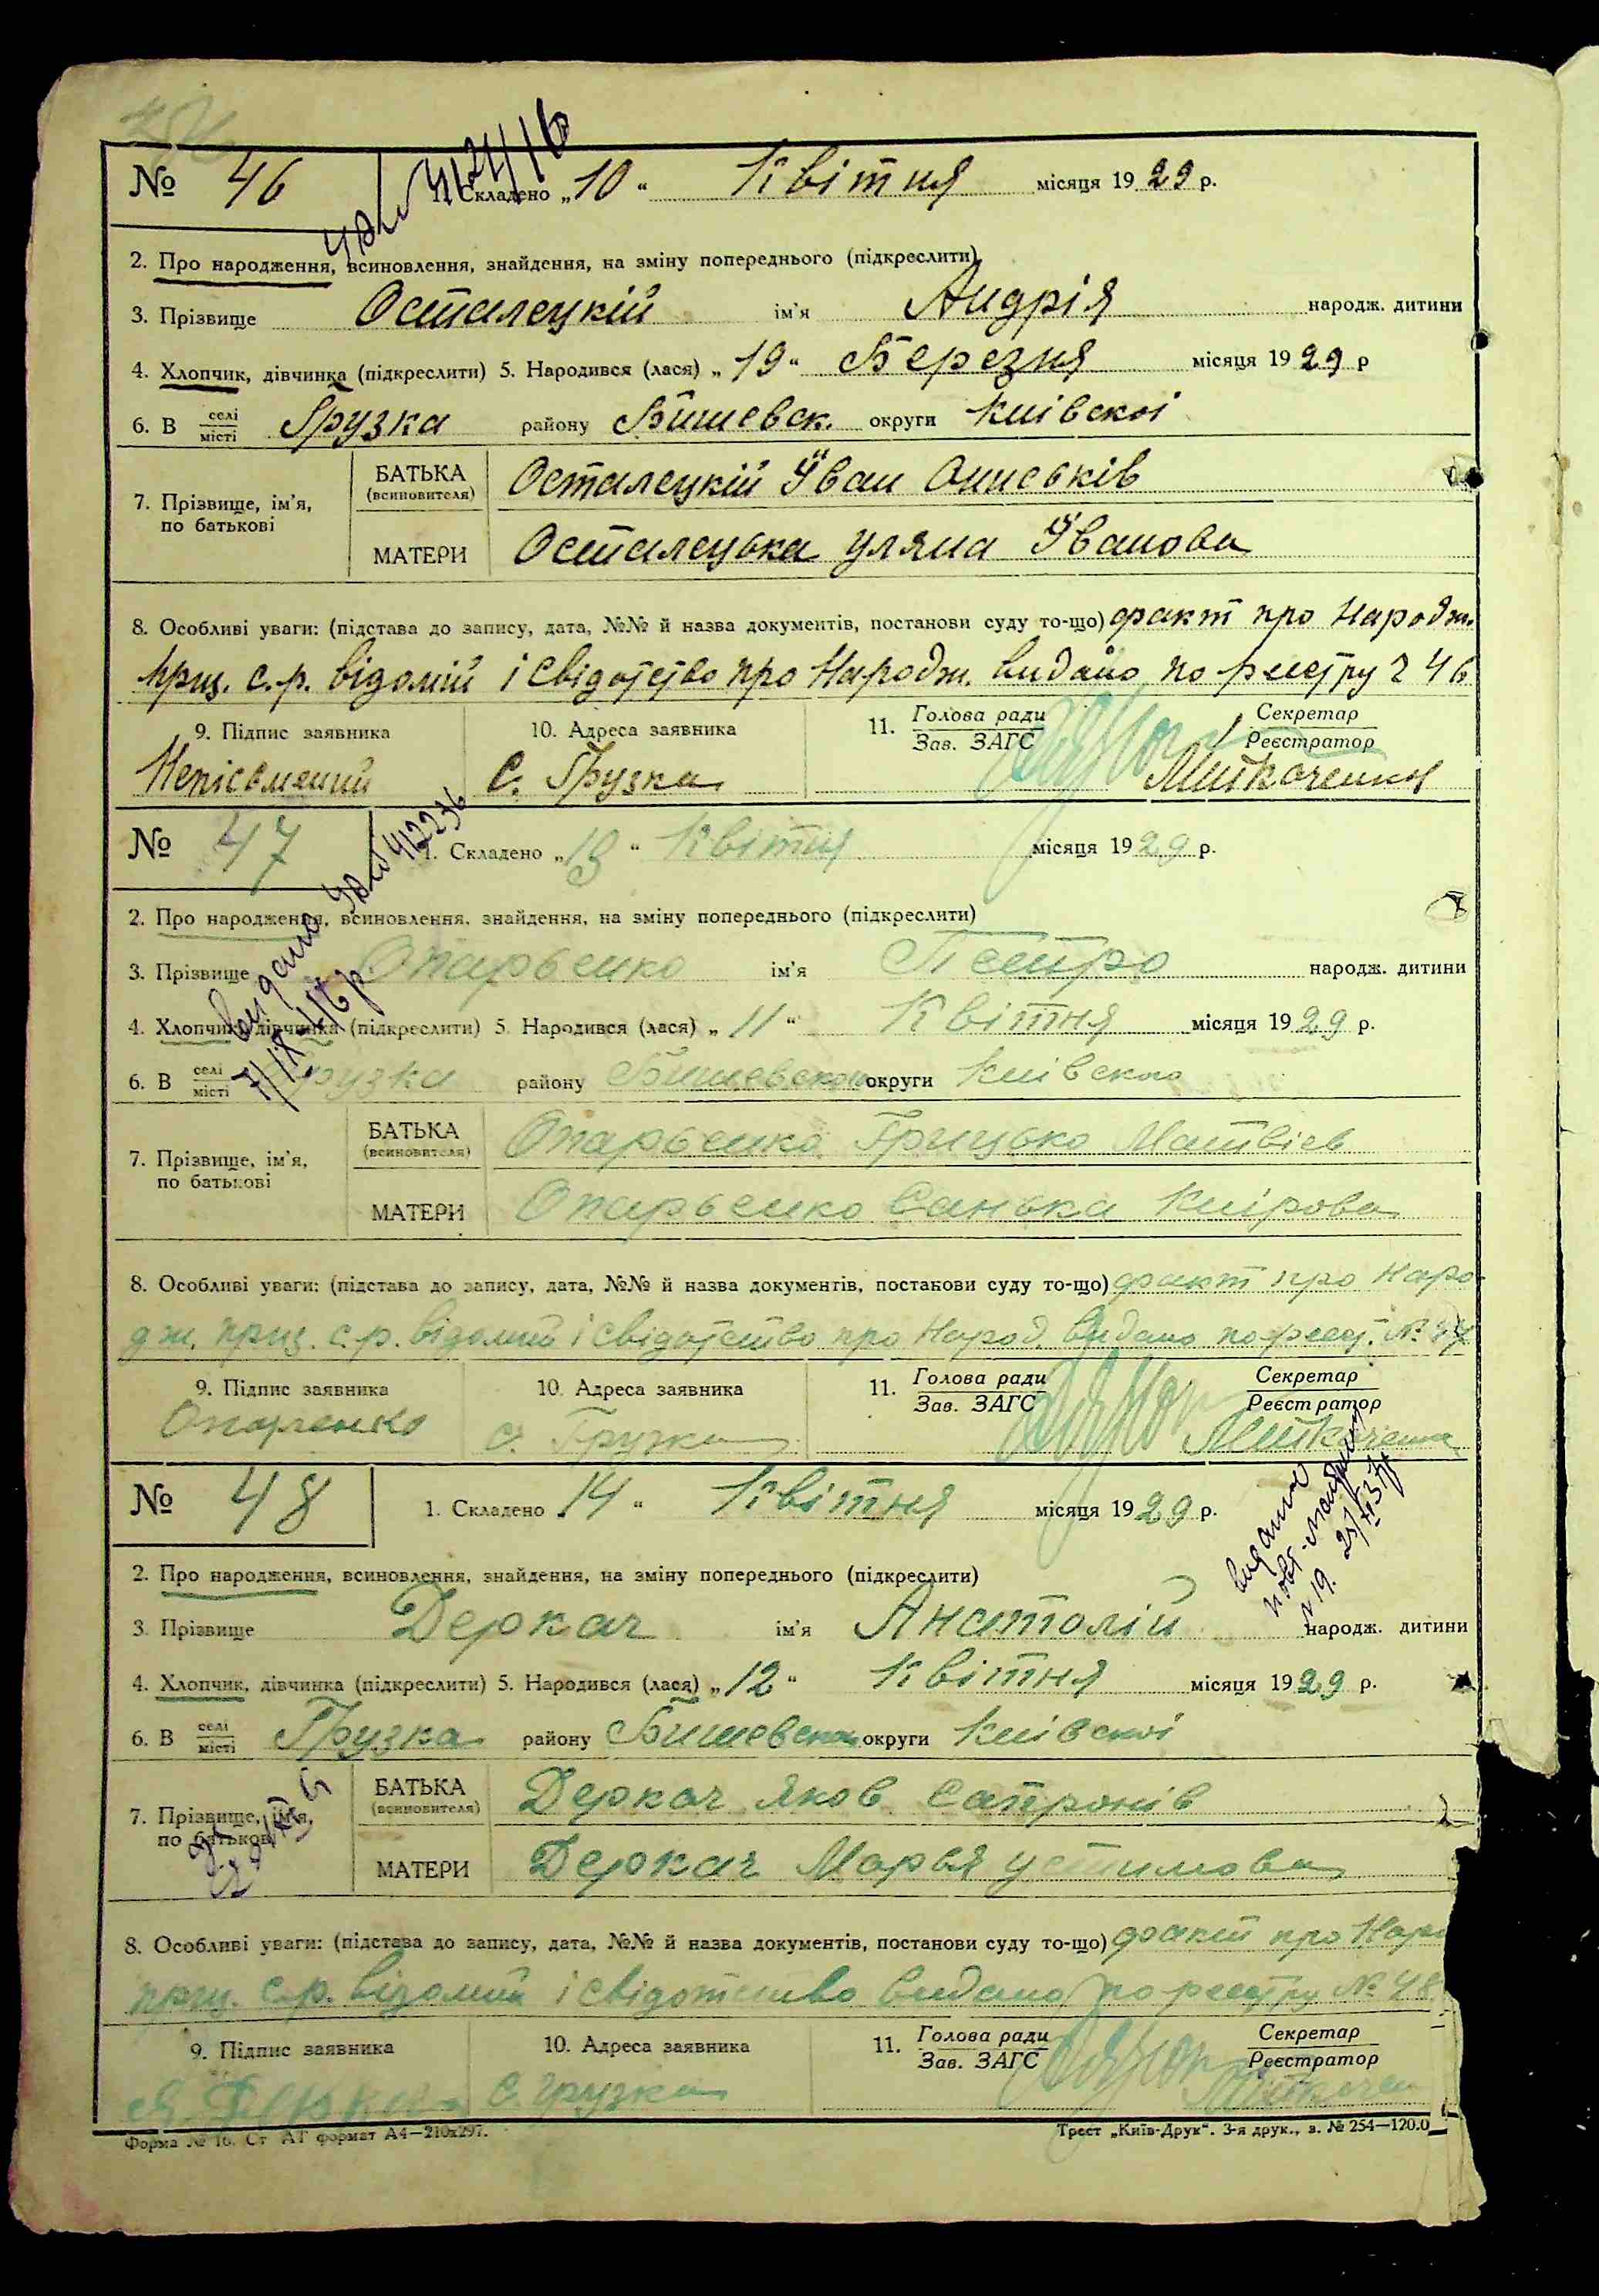 № 46 1. Складено „10“ Квітня місяця 1929 р.
2. Про народження, всиновлення, знайдення, на зміну попереднього (підкреслити)
3. Прізвище Осталецкій ім'я Андрія народж. дитини
4. Хлопчик, дівчинка (підкреслити) 5. Народився (лася) „19“ Березня місяця 1929 р
6. В селі/місті Грузка району Бишевск. округи Київскоі
7. Прізвище, ім'я, по батькові
БАТЬКА (всиновителя) Осталецкій Йван
МАТЕРИ Осталецька Уляна Йванова
8. Особливі уваги: (підстава до запису, дата, №№ й назва документів, постанови суду то-що) факт про Народж.
През. с.р. відомій і свідотство про Народж. видано по реестру № 46
9. Підпис заявника 10. Адреса заявника 11. Голова ради/Зав. ЗАГС Секретар/Реєстратор
Непісьмений С. Грузка
№ 47 1. Складено „13“ Квітня місяця 1929 р.
2. Про народження, всиновлення, знайдення, на зміну попереднього (підкреслити)
3. Прізвище Опарьенко ім'я Петро народж. дитини
4. Хлопчик, дівчинка (підкреслити) 5. Народився (лася) „11“ Квітня місяця 1929 р.
6. В селі/місті Грузка району Бишевского округи Київского
7. Прізвище, ім'я, по батькові
БАТЬКА (всиновителя) Опарьенко Грицько Матвіев
МАТЕРИ Опарьенко Санька Кирова
8. Особливі уваги: (підстава до запису, дата, №№ й назва документів, постанови суду то-що) факт про Наро-
дж. през. с.р. відомий і свідотство про Народ. видано по реест. № 47
9. Підпис заявника 10. Адреса заявника 11. Голова ради/Зав. ЗАГС Секретар/Реєстратор
Опаренко с. Грузка
№ 48 1. Складено 14“ Квітня місяця 1929 р.
2. Про народження, всиновлення, знайдення, на зміну попереднього (підкреслити)
3. Прізвище Деркач ім'я Анатолій народж. дитини
4. Хлопчик, дівчинка (підкреслити) 5. Народився (лася) „12“ Квітня місяця 1929 р.
6. В селі/місті Грузка району Бишевскои округи Київскоі
7. Прізвище, ім'я, по батькові
БАТЬКА (всиновителя) Деркач Яков Сапронів
МАТЕРИ Деркач Марья Устимова
8. Особливі уваги: (підстава до запису, дата, №№ й назва документів, постанови суду то-що) факт про Наро
през. с.р. відомий і свідотство видано по реестру № 48.
9. Підпис заявника 10. Адреса заявника 11. Голова ради/Зав. ЗАГС Секретар/Реєстратор
С. Грузка
Форма № 16. Ст АТ формат А4—210х297. Трест „Київ-Друк“. 3-я друк., з. № 254—120.0